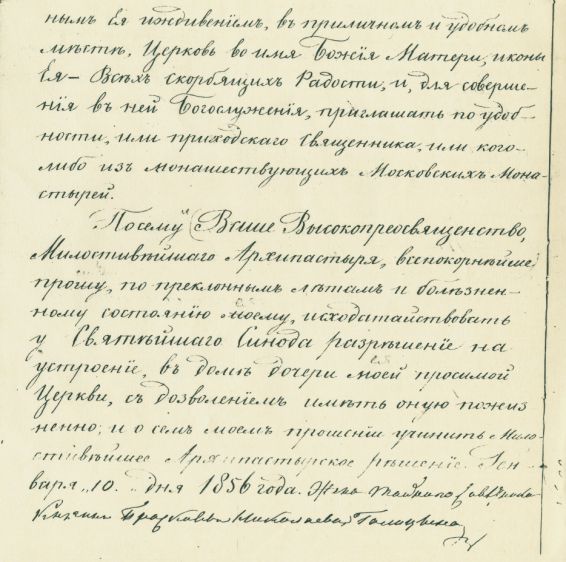 нымъ Ея иждивеніемъ, въ приличномъ и удобномъ
мѣстѣ, Церковь во имя Божія Матери, иконы
Ея – Всѣхъ скорбящихъ Радости, и, для соверше-
нія въ ней Богослуженія, приглашать по удоб-
ности, или приходскаго священника, или кого-
либо изъ монашествующихъ Московскихъ Мона-
стырей.
Посему Ваше Высокопреосвященство,
Милостивѣйшаго Архипастыря, всепокорнѣйше
прошу, по преклоннымъ лѣтамъ и болѣзнен-
ному состоянію моему, исходатайствовать
у Святѣйшаго Синода разрѣшеніе на
устроеніе, въ домѣ дочери моей просимой
Церкви, съ дозволеніемъ имѣть оную пожиз
ненно; и о семъ моемъ прошеніи учинить Мило-
стивѣйшее Архипастырское рѣшеніе. Ген-
варя „10„ дня 1856 года. Жена
Николаева Голицына